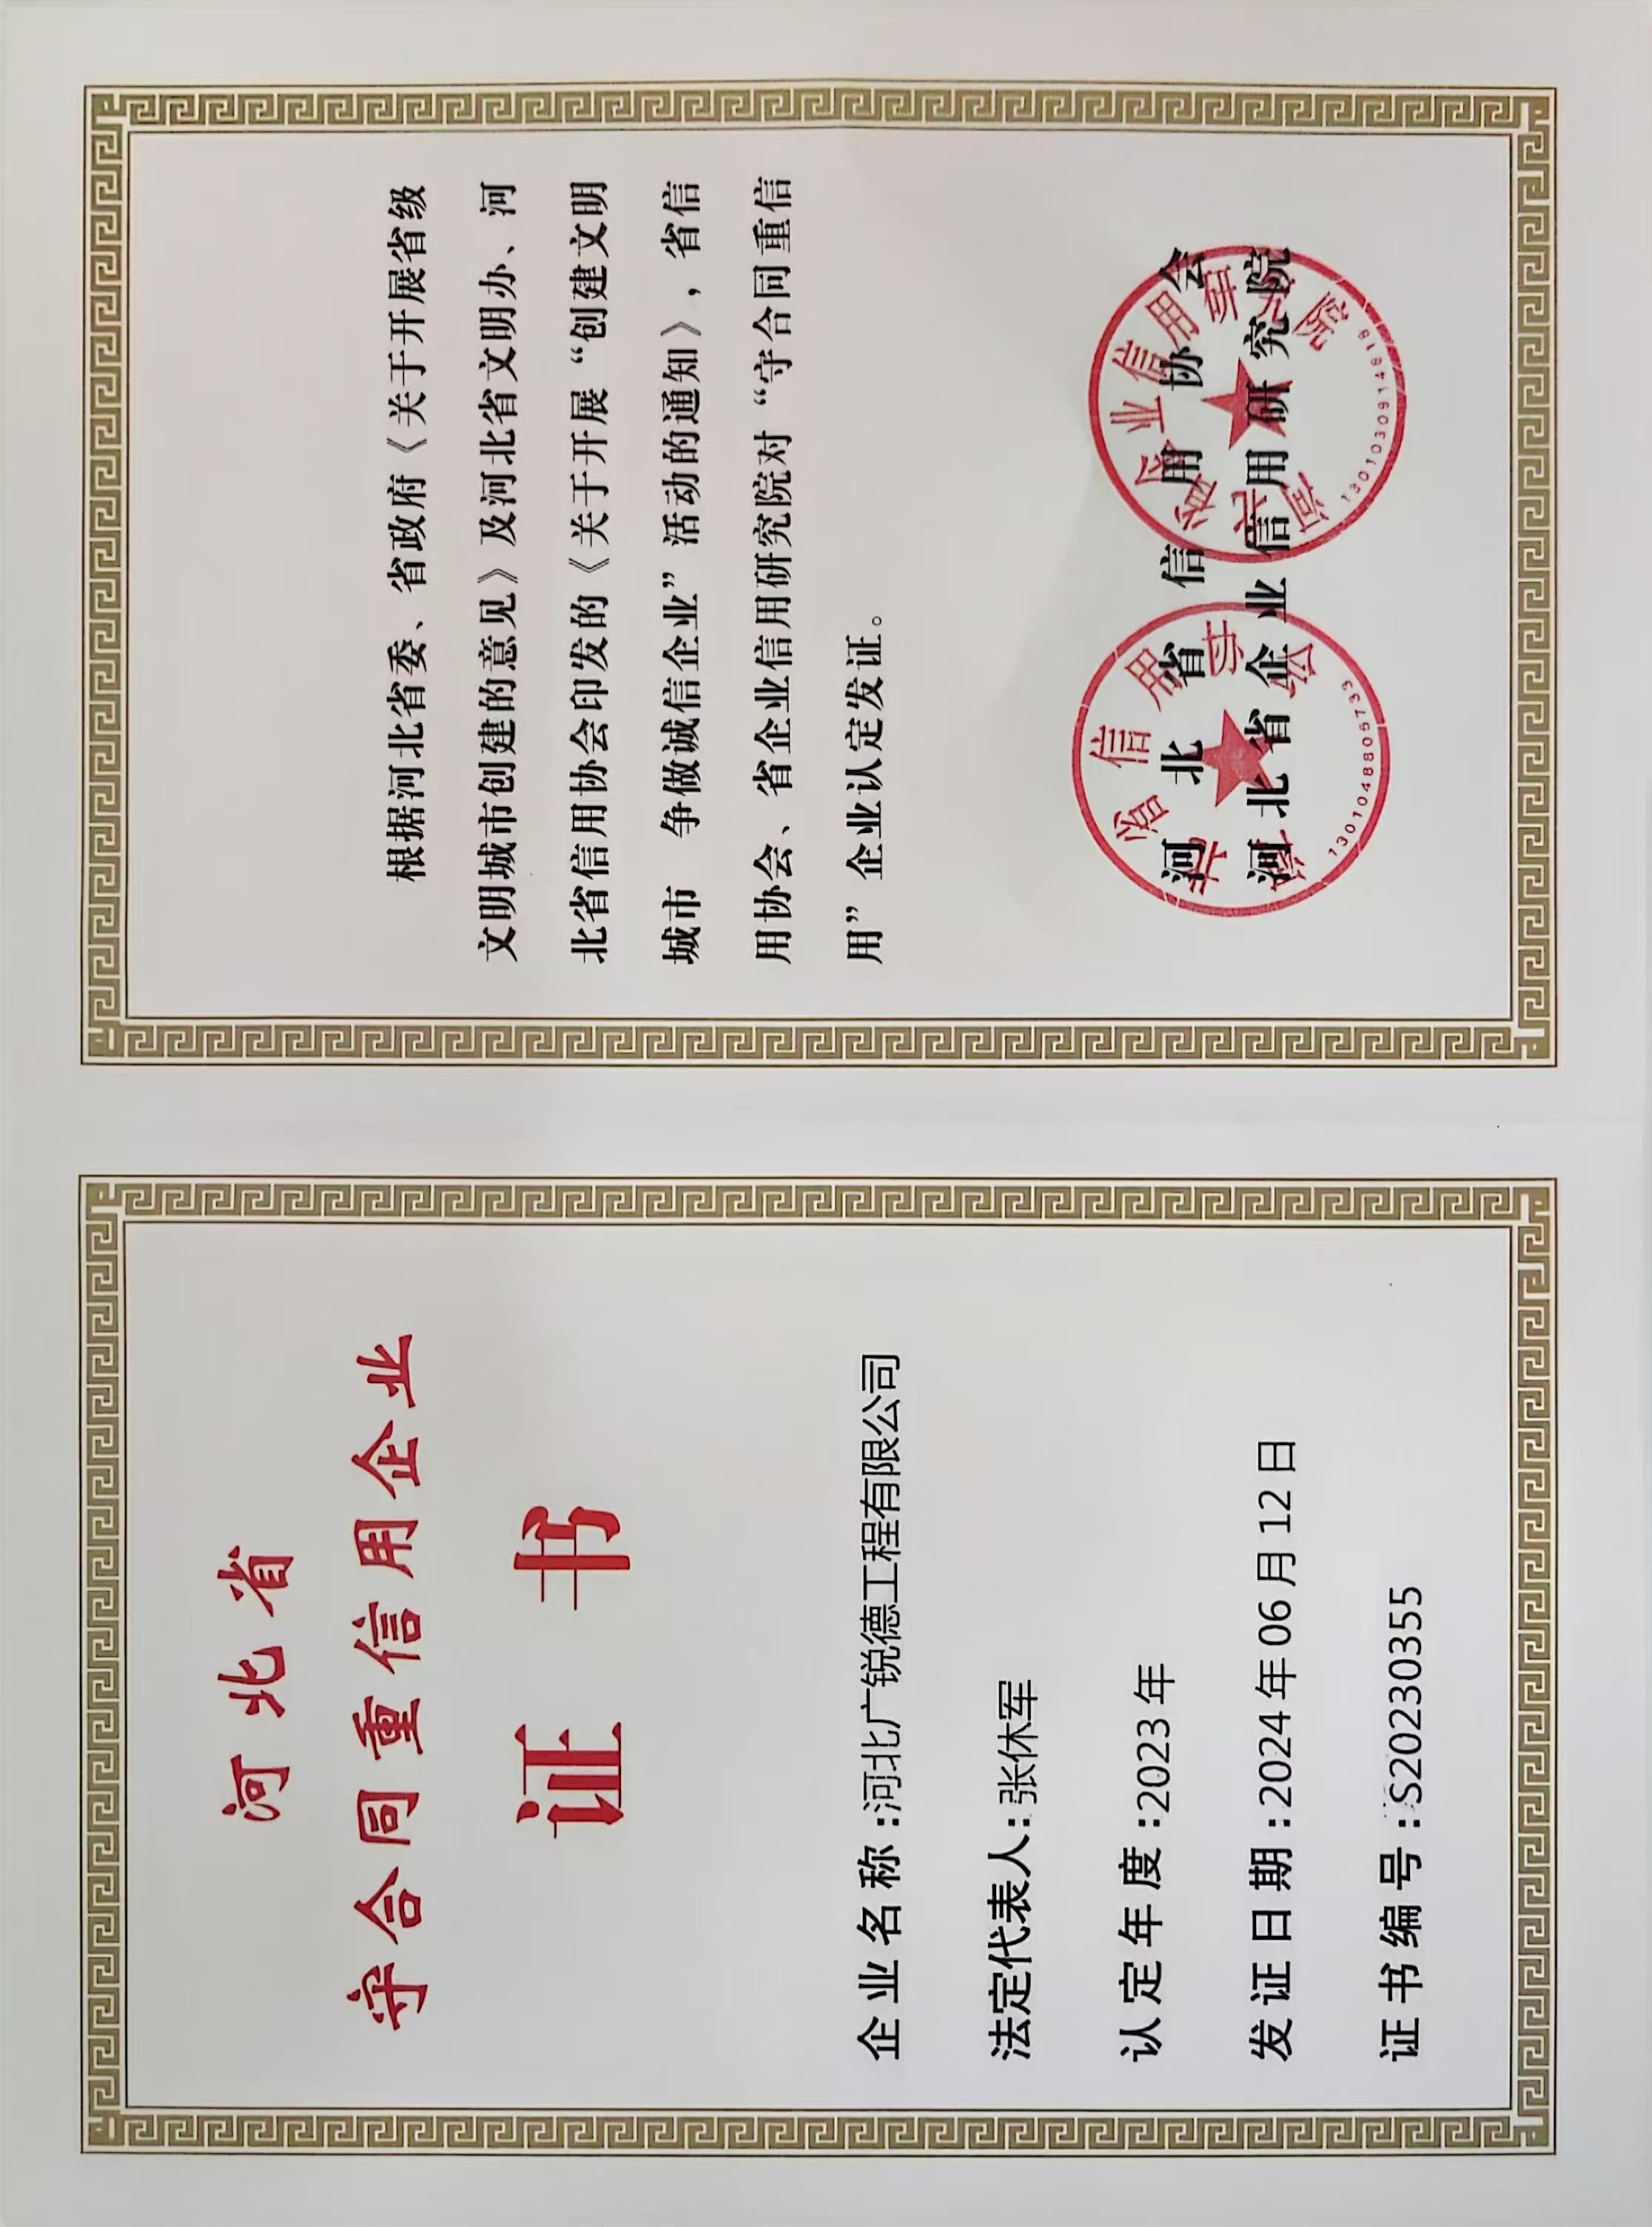 河北省
守合同重信用企业
证 书
企业名称:河北广锐德工程有限公司
法定代表人:张休军
认定年度:2023年
发证日期:2024年06月12日
证书编号:S20230355
根据河北省委、省政府《关于开展省级
文明城市创建的意见》及河北省文明办、河
北省信用协会印发的《关于开展“创建文明
城市 争做诚信企业”活动的通知》,省信
用协会、省企业信用研究院对“守合同重信
用”企业认定发证。
河北省信用协会
河北省企业信用研究院
河北省信用协会
1301048805733
河北省企业信用研究院
1301030914818